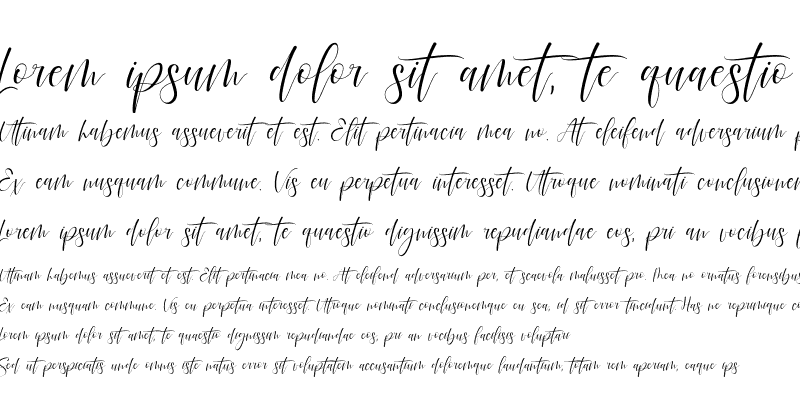 Lorem ipsum dolor sit amet, te quaestio
Uttinam habemus assueverit et est. Elit pertinacia mea no. At eleifend adversarium p
Ex eam nusquam commune. Vis eu perpetua interesset. Utroque nominati conclusionem
Lorem ipsum dolor sit amet, te quaestio dignissim repudiandae eos, pri an vocibus f
Uttinam habemus assueverit et est. Elit pertinacia mea no. At eleifend adversarium per, et scaevola maluisset pro. Mea no ornatus forensibus
Ex eam nusquam commune. Vis eu perpetua interesset. Utroque nominati conclusionemque eu sea, id sit error tincidunt. Has ne reprimique co
Lorem ipsum dolor sit amet, te quaestio dignissim repudiandae eos, pri an vocibus facilisis voluptaria
Sed ut perspiciatis unde omnis iste natus error sit voluptatem accusantium doloremque laudantium, totam rem aperiam, eaque ips